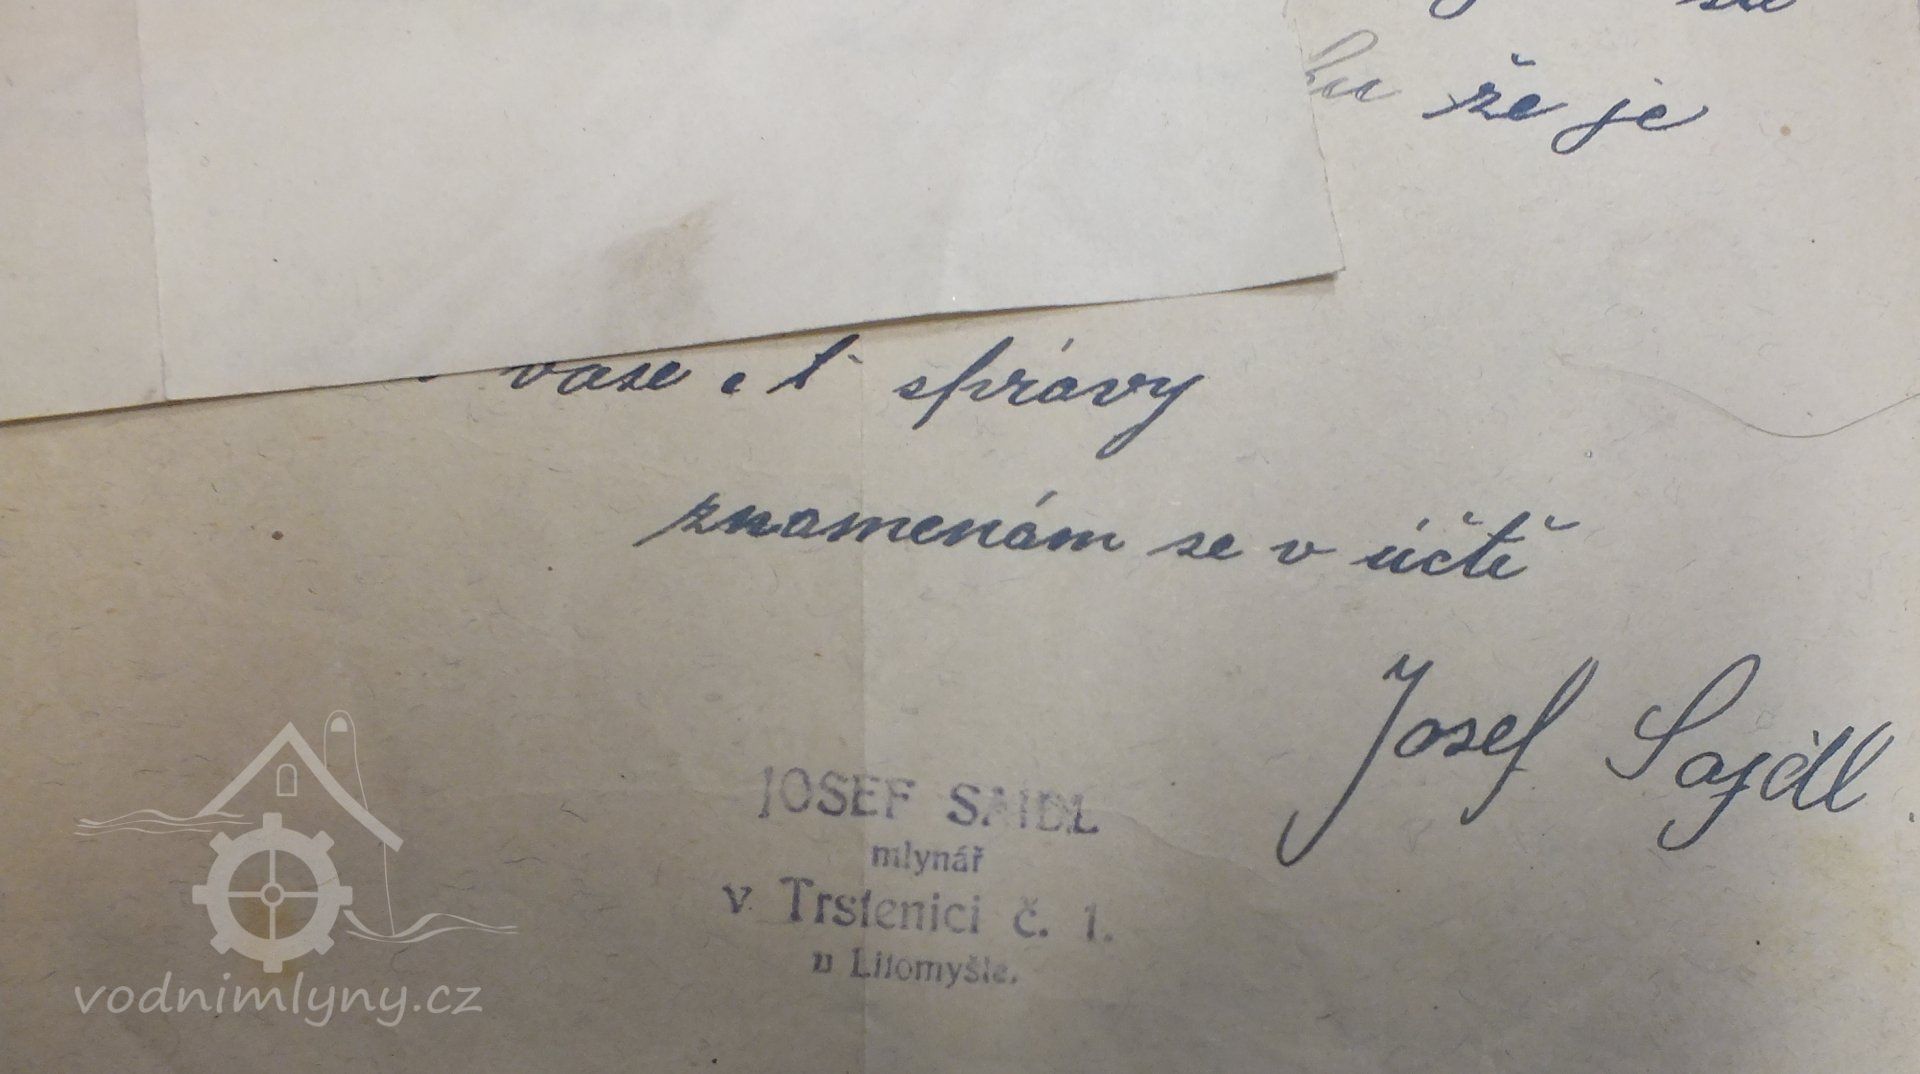 že je
vase c t správy
znamenám se v účtě
Josef Sajdl
JOSEF SAIDL
mlynář
v Trstenici č. 1.
u Litomyšle.
vodnimlyny.cz